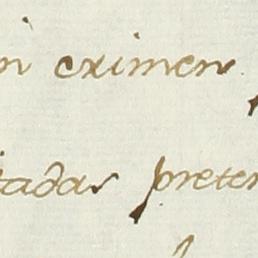 ni eximen
tadas preten